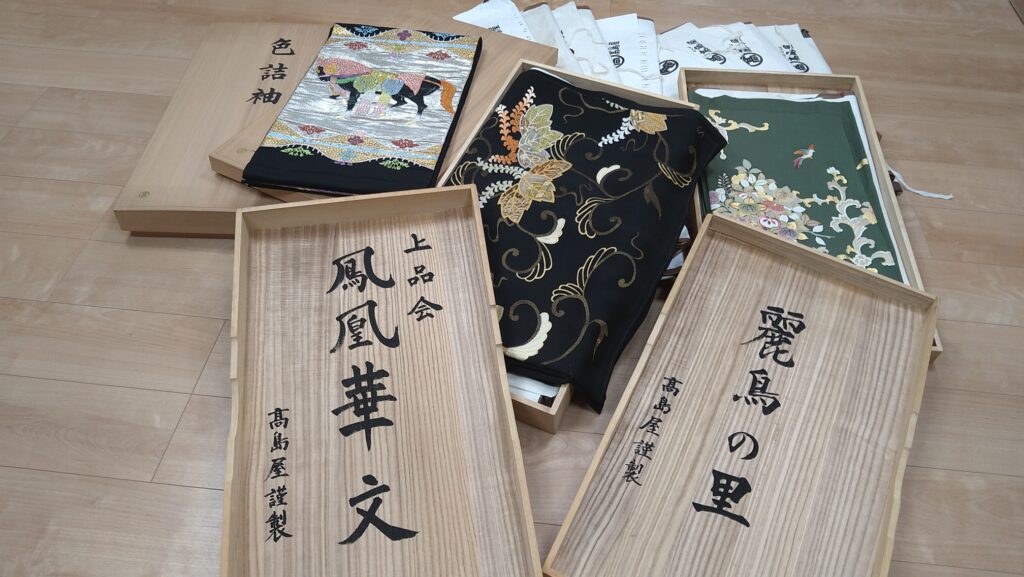 色詰袖
上品会
鳳凰華文
髙島屋謹製
麗鳥の里
髙島屋謹製